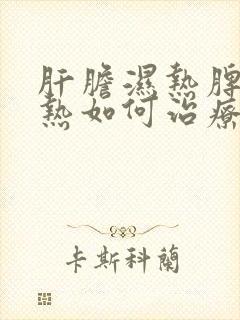 肝膽濕熱脾
熱如何治療
卡斯科蘭